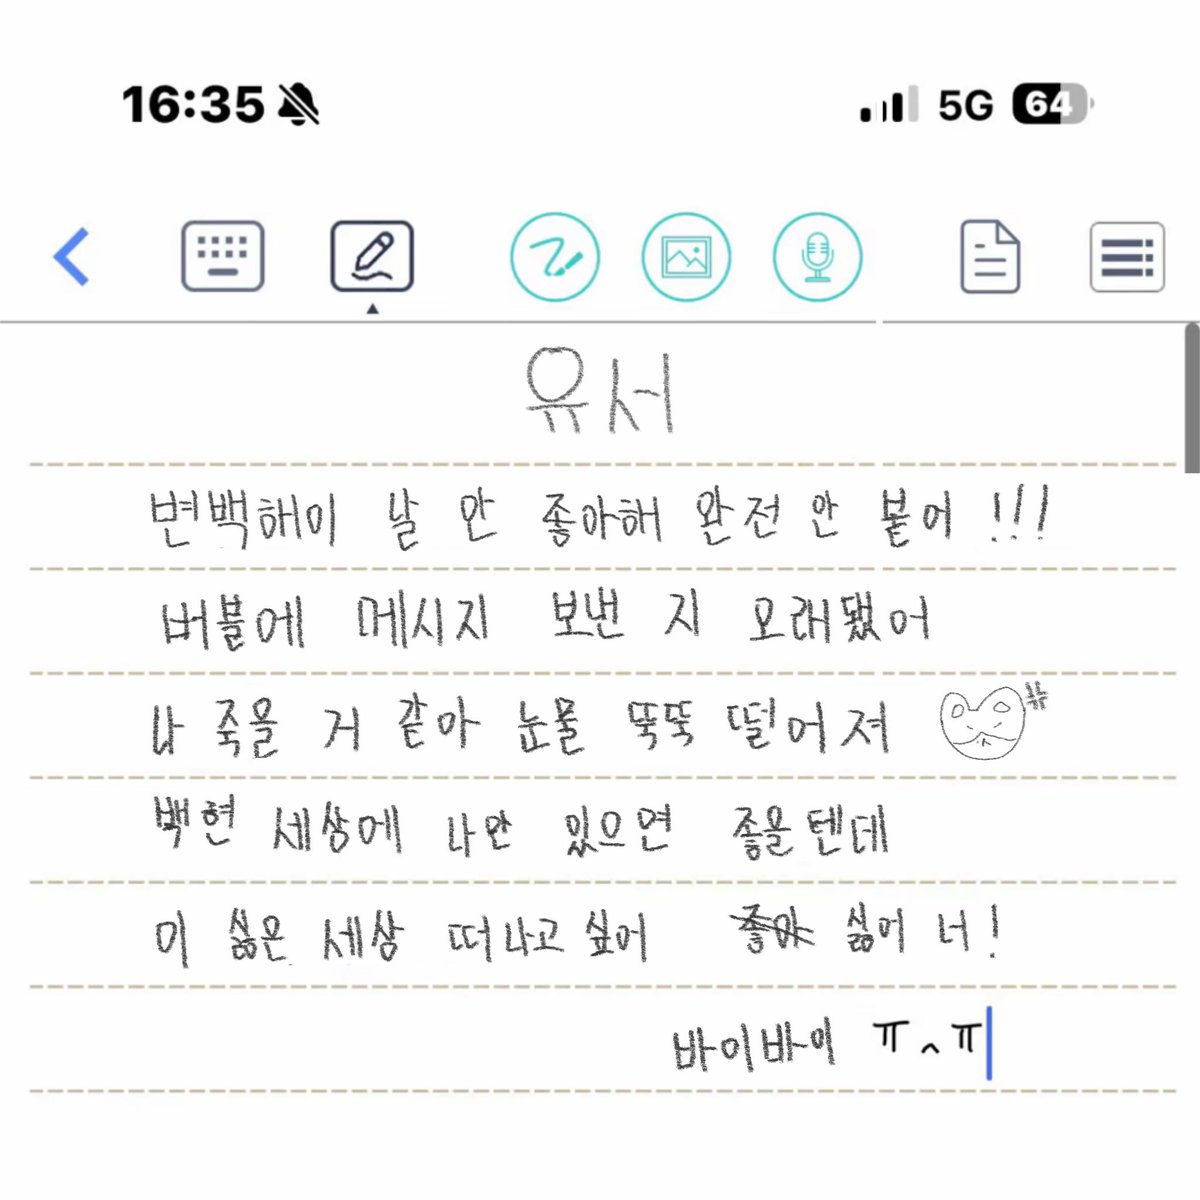 16:35 5G 64
유서
변백해이 날 안 좋아해 완전 안 붙어 !!!
버블에 메시지 보낸 지 오래됐어
나 죽을 거 같아 눈물 뚝뚝 떨어져 ㅠㅠ
백현 세상에 나안 있으면 좋을텐데
이 싫은 세상 떠나고 싶어 좋아 싫어 너!
바이바이 ㅠ^ㅠ